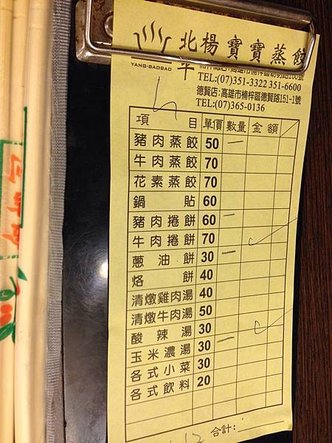 北楊寶寶蒸餃
平
YANG-BAOBAO
TEL:(07)351-3322 351-6600
德賢店:高雄市楠梓區德賢路151-1號
TEL:(07)365-0136
項目 單價 數量 金額
豬肉蒸餃 50 一
牛肉蒸餃 70
花素蒸餃 70
鍋貼 60
豬肉捲餅 60 一
牛肉捲餅 70
蔥油餅 30 一
烙餅 40
清燉雞肉湯 40
清燉牛肉湯 50
酸辣湯 30
玉米濃湯 30 一
各式小菜 30
各式飲料 20
合計: